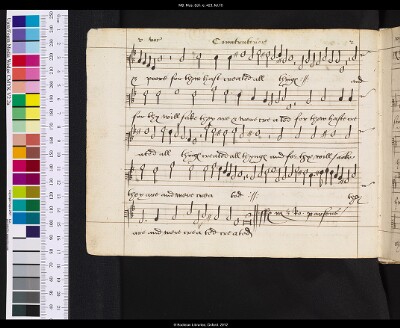 MS. Mus. Sch. e. 423, fol.
2 voc Contratenor 2
& power for thow hast created all thyngs // and
for thy will sake they are & were cre a ted for thow hast cre
ated all thyngs created all thyngs and for thy will sake
they are and were crea ted :||: they
are and were crea ted created
© Bodleian Libraries, Oxford, 2012